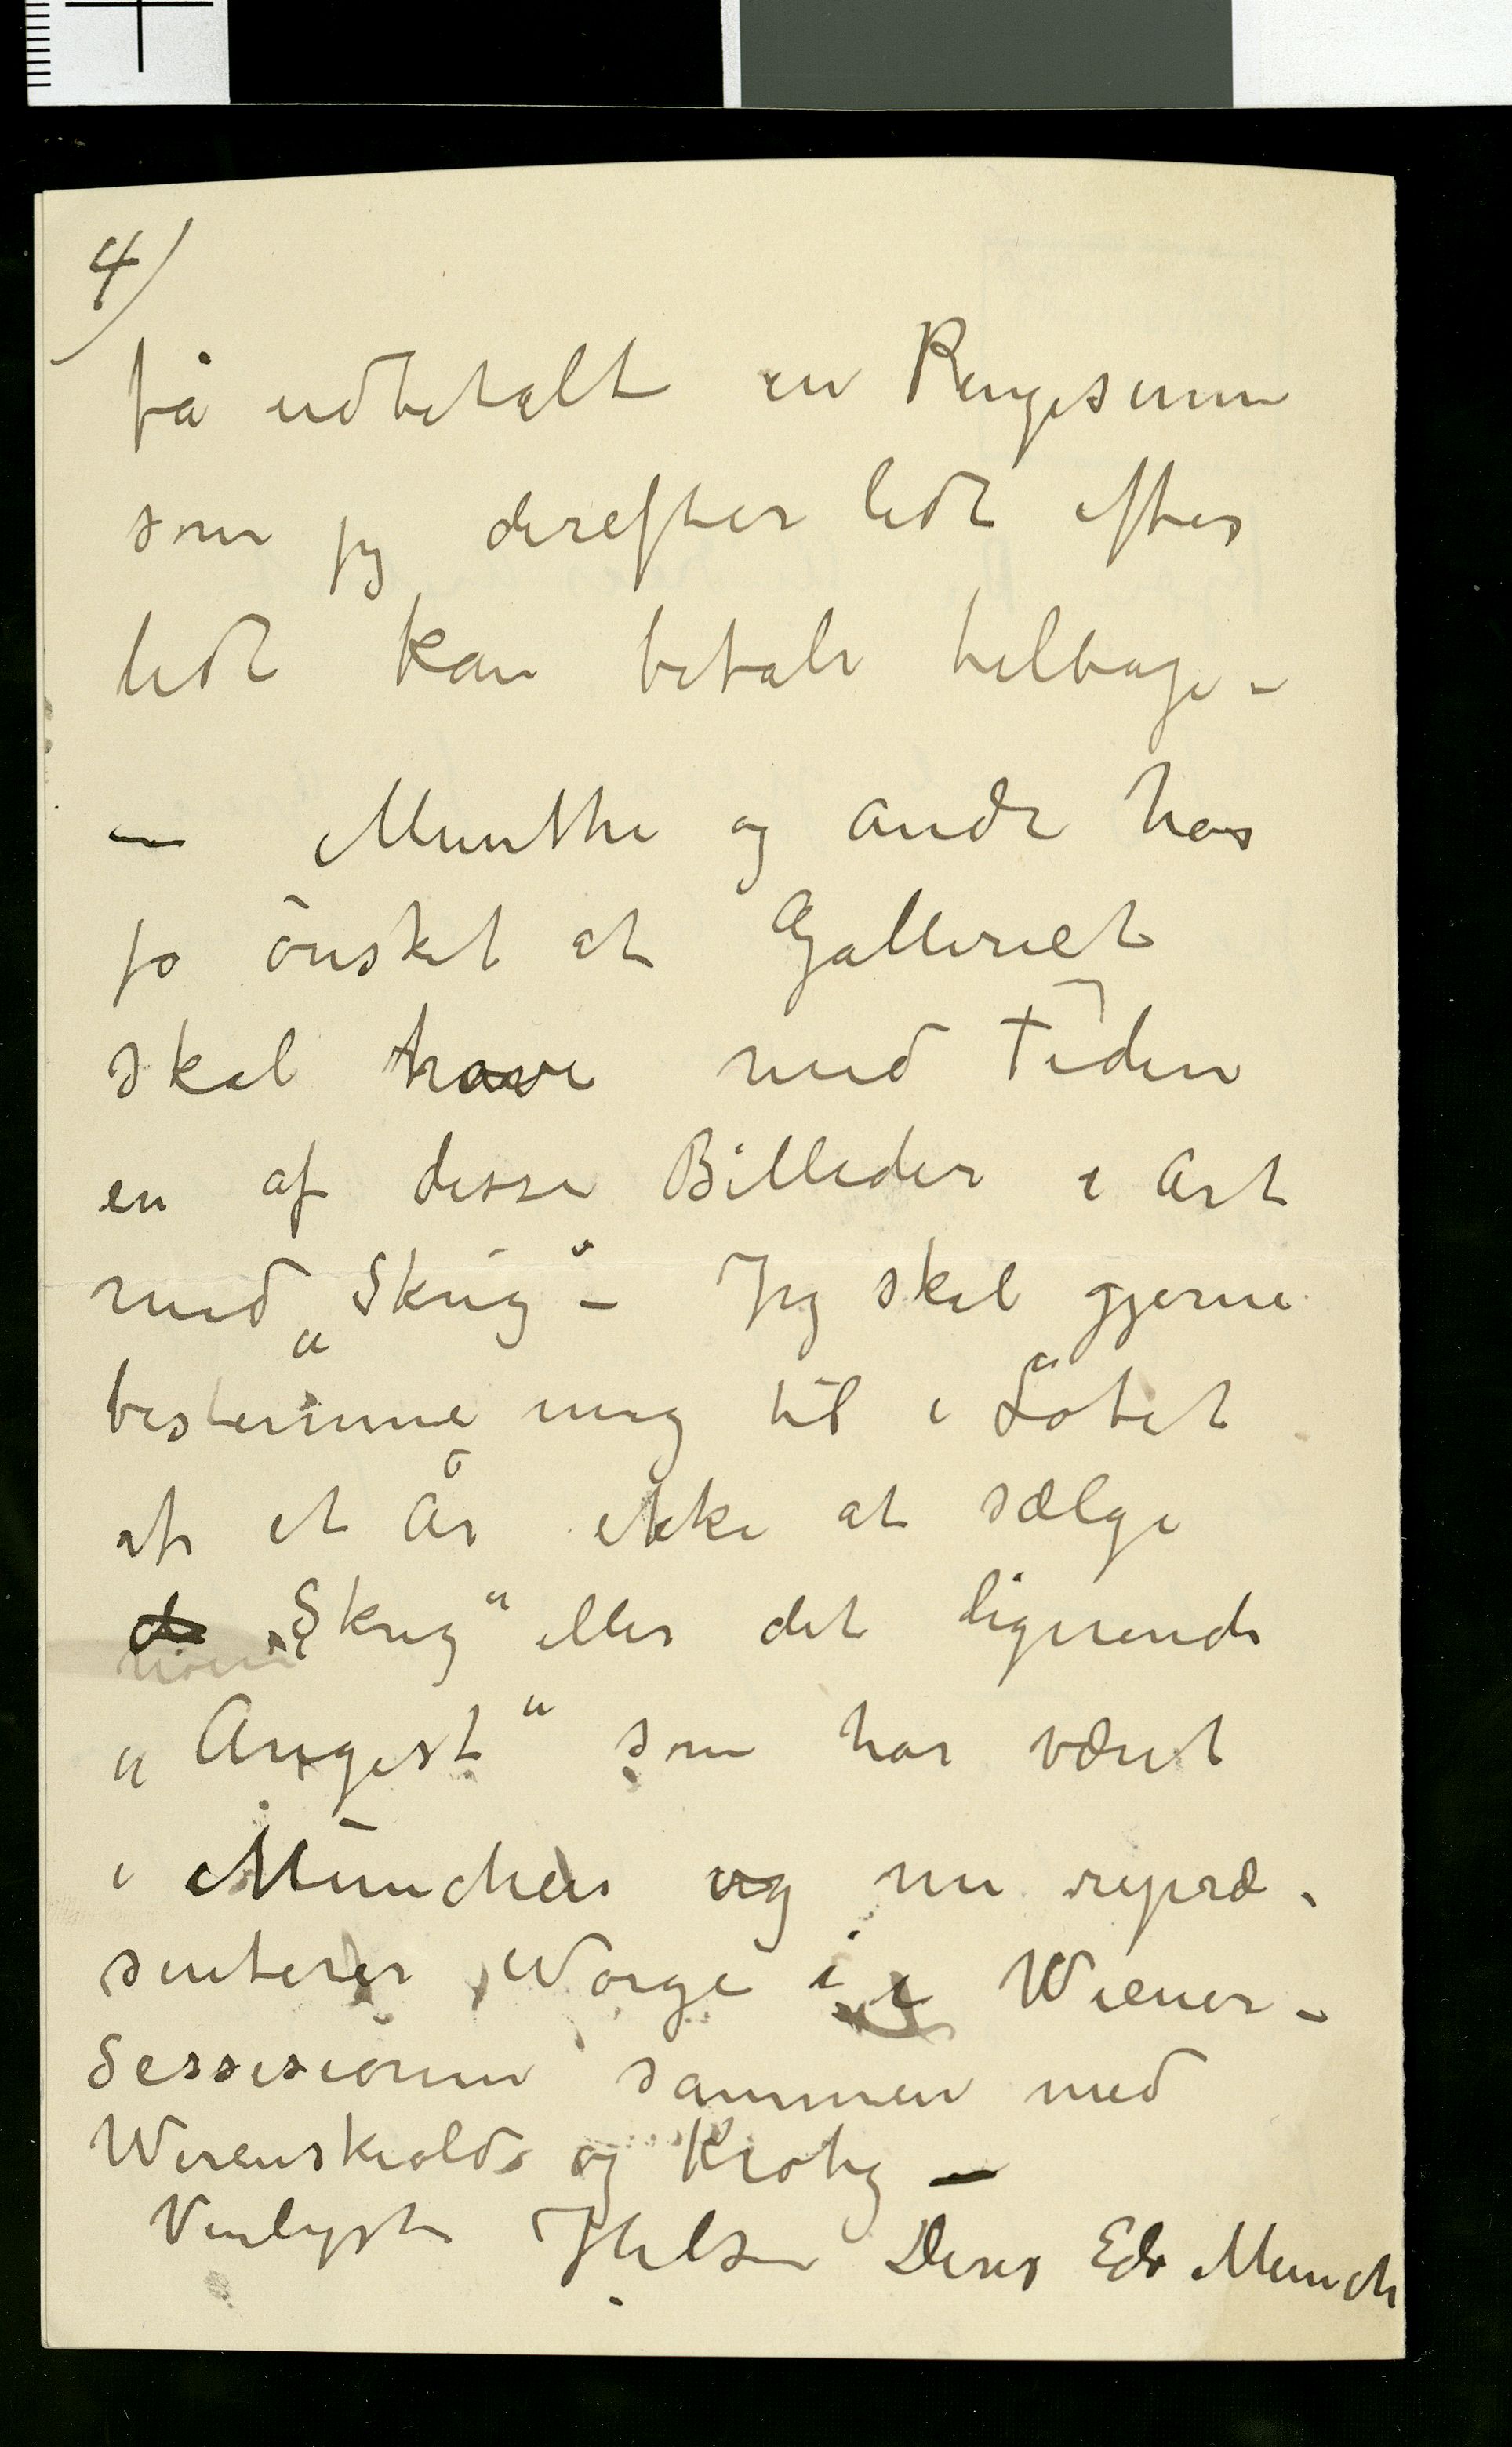 4/
få udbetalt en Pengesum
som jeg derefter lidt efter
lidt kan betale tilbage –
– Munthe og andre har
jo ønsket at Galleriet
skal have med Tiden
en af disse Billeder i Art
med „Skrig“ – Jeg skal gjerne
bestemme mig til i Løbet
af et År ikke at sælge
„Skrig“ eller det lignende
„Angest“ som har været
i München og nu repræ-
senterer Norge i Wiener-
Sessesionen sammen med
Werenskiold og Krohg –
Venligst Hilsen Deres Edv Munch